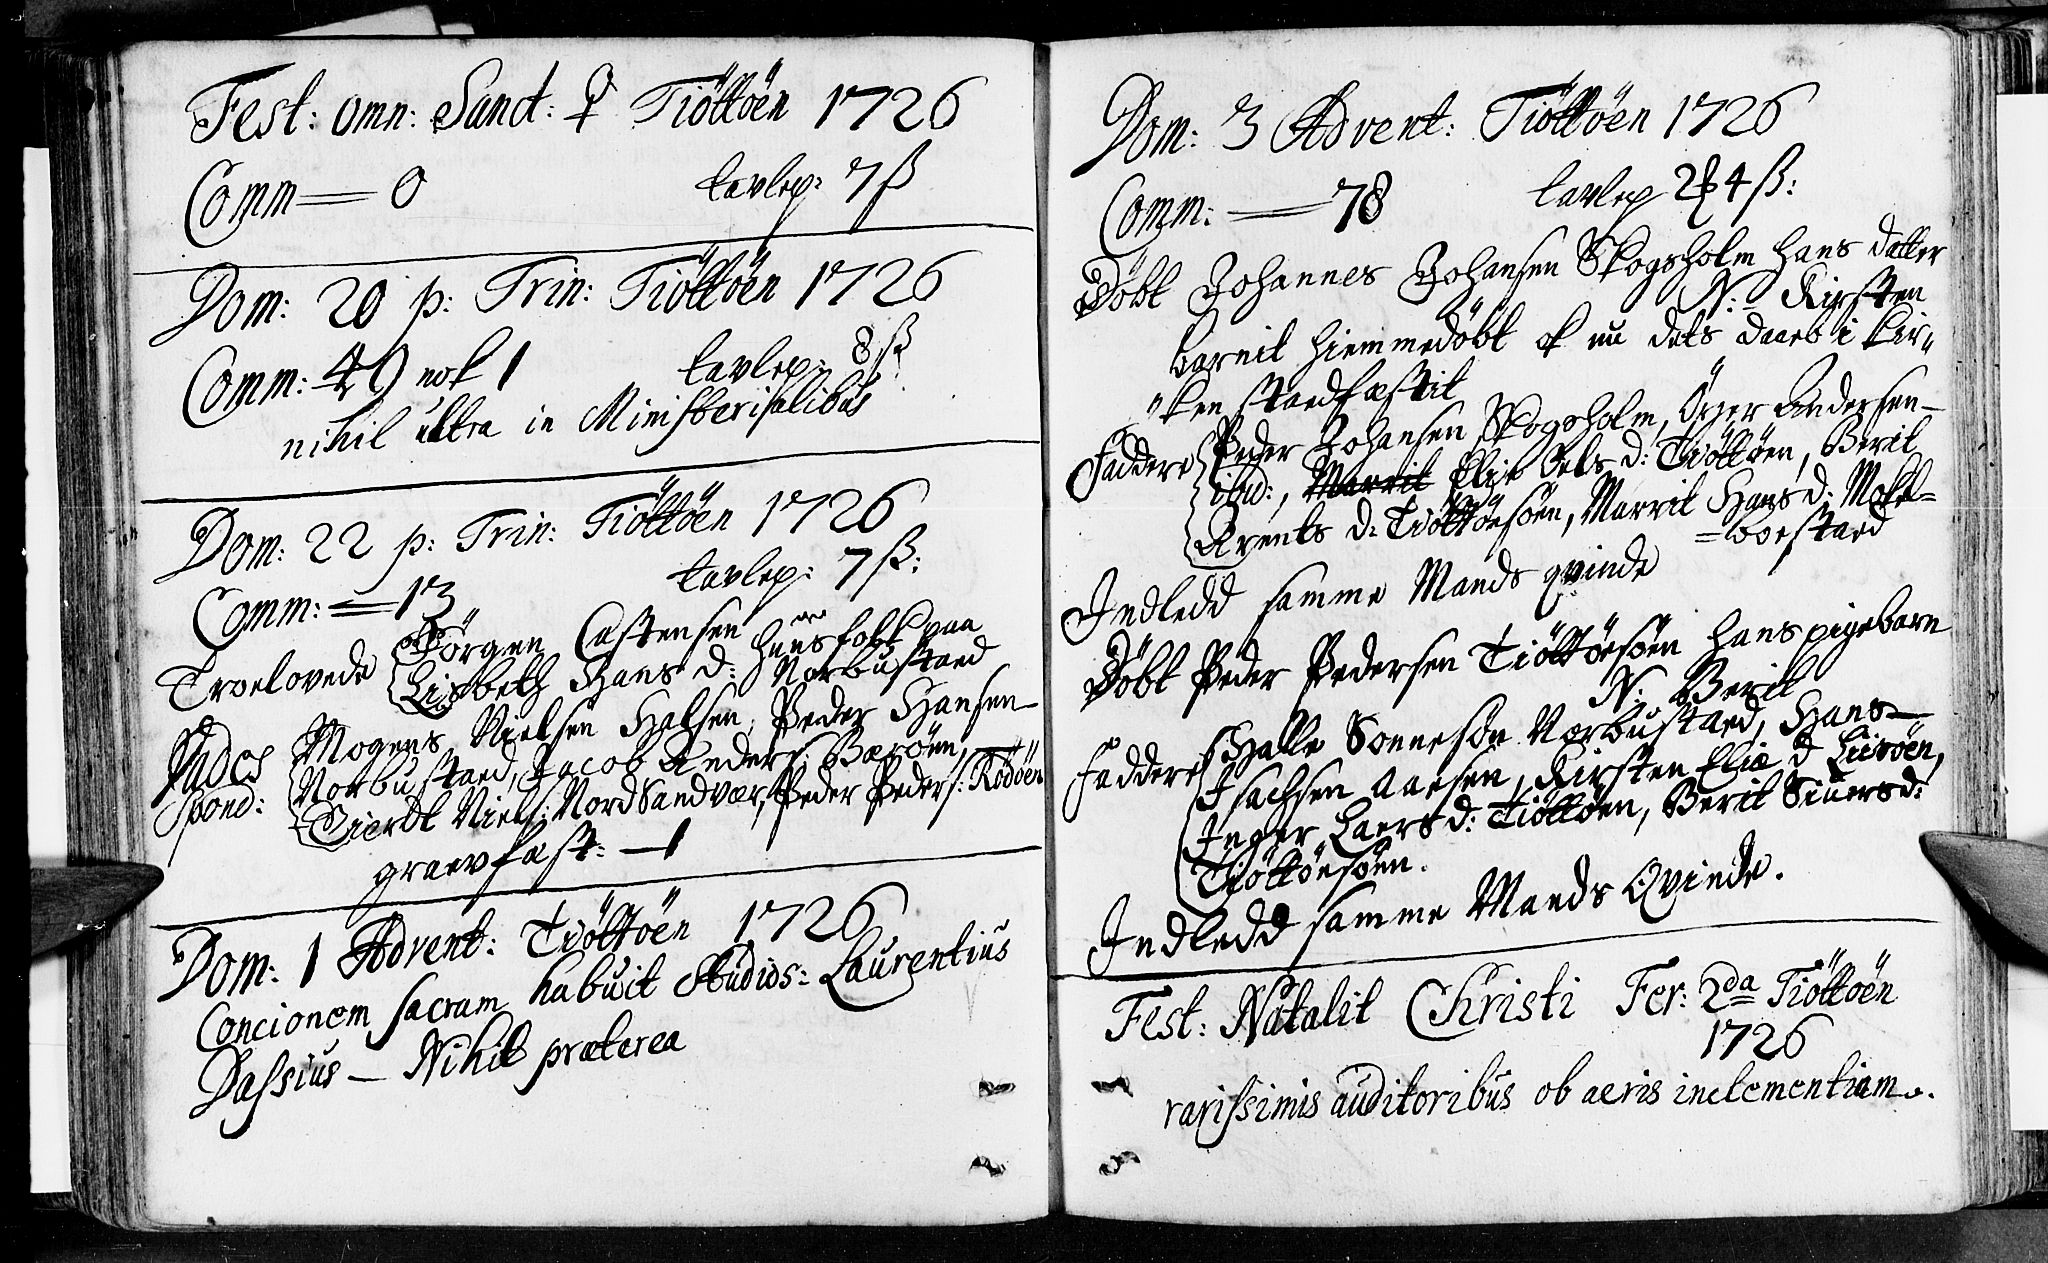 Fest: omn: Sanct: ♀ Tiöttöen 1726
Comm = 0 tavlep: 7 ß
Dom: 20 p: Trin: Tiöttöen 1726
Comm: 49 nok 1 tavlep: 8 ß
nihil ultra in Ministerialibus
Dom: 22 p: Trin: Tiöttöen 1726
Comm: = 13 tavlep: 7 ß:
Troelovede Jörgen Castensen
Lisbeth Hans d: huusfolk paa Norbustaed
Fides Mogens Nielsen Halsen, Peder Hansen
Spond: Norbustaed, Jacob Anders: Bæröen,
Sierdt Niels: Nord Sandvær, Peder Peders: Rödöen
graevfæst: — 1
Dom: 1 Advent: Tiöttöen 1726
Concionem sacram habuit Studios: Laurentius
Dassius — Nihil præterea
Dom: 3 Advent: Tiöttöen 1726
Comm: = 78 tavlep 2 4 ß:
Döbt Johannes Johansen Skogsholm hans datter
N: Kirsten
barnit hiemmedöbt ok nu dets daab i kir„
„ken stadfæstit
Faddere Peder Johansen Skogsholm, Andersen
ibid:, Marrit Elie Oels d: Tiöttöen, Berit
Arents d: Tiöttöesöen, Marrit Hans d: Mokl=
=boestaed
Indledd samme Mands qvinde
Döbt Peder Pedersen Tiöttöesöen hans pigebarn
N: Berit
Faddere Halle Sonnesön Norbustaed, Hans
Isachsen Aaesen, Kirsten Elia d
Inger Laers d: Tiöttöen, Berit Siuers d:
Tiöttöesöen.
Indledd samme Mands Qvinde.
Fest: Natalit Christi Fer: 2da Tiöttöen
1726
rarissimis auditoribus ob aeris inclementiam.